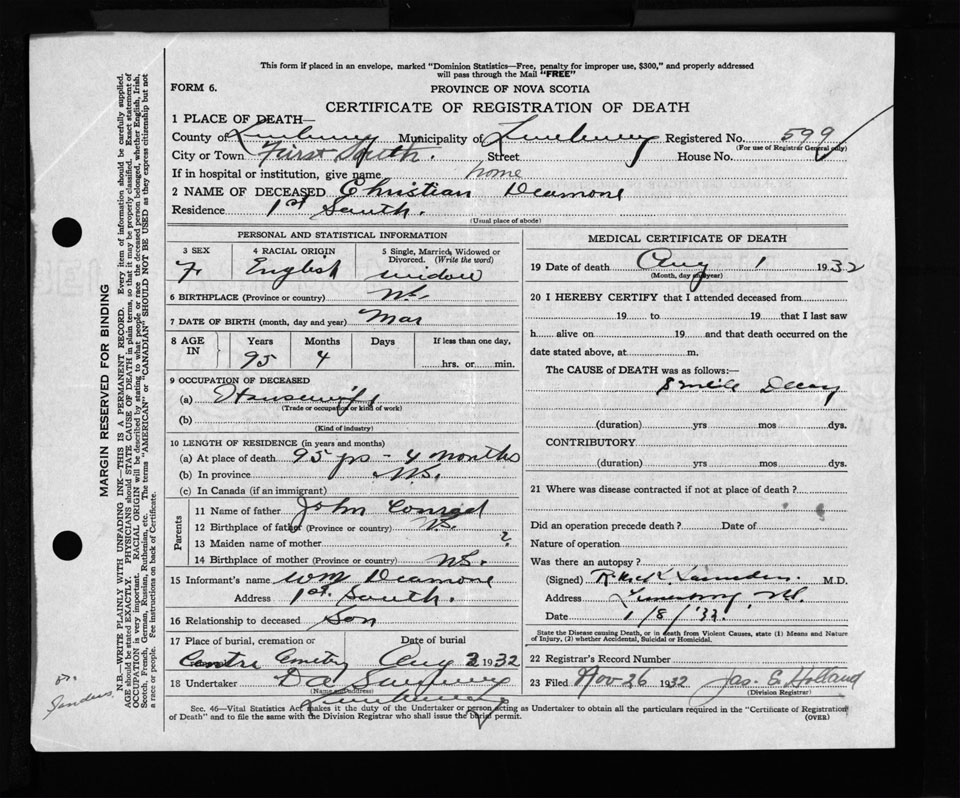 This form if placed in an envelope, marked "Dominion Statistics—Free, penalty for improper use, $300," and properly addressed
will pass through the Mail "FREE"
FORM 6.
PROVINCE OF NOVA SCOTIA
CERTIFICATE OF REGISTRATION OF DEATH
1 PLACE OF DEATH—
County of Lunenburg Municipality of Lunenburg Registered No. 599
(For use of Registrar General only)
City or Town First South. Street House No.
If in hospital or institution, give name home
2 NAME OF DECEASED Christian Deamone
Residence 1st South.
(Usual place of abode)
PERSONAL AND STATISTICAL INFORMATION
3 SEX 4 RACIAL ORIGIN 5 Single, Married, Widowed or
Divorced. (Write the word)
F. English widow
6 BIRTHPLACE (Province or country) N.S.
7 DATE OF BIRTH (month, day and year) Mar
8 AGE
IN
Years Months Days If less than one day,
95 4
hrs. or min.
9 OCCUPATION OF DECEASED
(a) Housewife
(Trade or occupation or kind of work)
(b)
(Kind of industry)
10 LENGTH OF RESIDENCE (in years and months)
(a) At place of death 95 yrs - 4 months
(b) In province N.S.
(c) In Canada (if an immigrant)
Parents
11 Name of father John Conrad
12 Birthplace of father (Province or country) N.S.
13 Maiden name of mother ?
14 Birthplace of mother (Province or country) N.S.
15 Informant's name Wm Deamone
Address 1st South.
16 Relationship to deceased Son
17 Place of burial, cremation or Date of burial
Centre Cemetry Aug 2 1932
18 Undertaker D A
(Name and address)
Lunenburg
MEDICAL CERTIFICATE OF DEATH
19 Date of death Aug 1 1932
(Month, day and year)
20 I HEREBY CERTIFY that I attended deceased from
19 to 19 that I last saw
h alive on 19 and that death occurred on
date stated above, at m.
The CAUSE of DEATH was as follows:—
Senile Decay
(duration) yrs mos dys.
CONTRIBUTORY
(duration) yrs mos dys.
21 Where was disease contracted if not at place of death?
Did an operation precede death? Date of
Nature of operation
Was there an autopsy?
(Signed) Saunders. M.D.
Address Lunenburg N.S.
Date 1/8/'32.
State the Disease causing Death, or in death from Violent Causes, state (1) Means and Nature
of Injury, (2) whether Accidental, Suicidal or Homicidal.
22 Registrar's Record Number
23 Filed Nov 26 1932 Jas. E. Holland
(Division Registrar)
Sec. 46—Vital Statistics Act makes it the duty of the Undertaker or person acting as Undertaker to obtain all the particulars required in the "Certificate of Registration
of Death" and to file the same with the Division Registrar who shall issue the burial permit. (OVER)
MARGIN RESERVED FOR BINDING
N.B.—WRITE PLAINLY WITH UNFADING INK—THIS IS A PERMANENT RECORD. Every item of information should be carefully supplied.
AGE should be stated EXACTLY. PHYSICIANS should STATE CAUSE OF DEATH in plain terms, so that it may be properly classified. Exact statement of
OCCUPATION is very important. RACIAL ORIGIN will be described by stating to what people or race the deceased person belonged, whether English, Irish,
Scotch, French, German, Russian, Ruthenian, etc. The terms "AMERICAN" or "CANADIAN" SHOULD NOT BE USED as they express citizenship but not
a race or people. See instructions on back of Certificate.